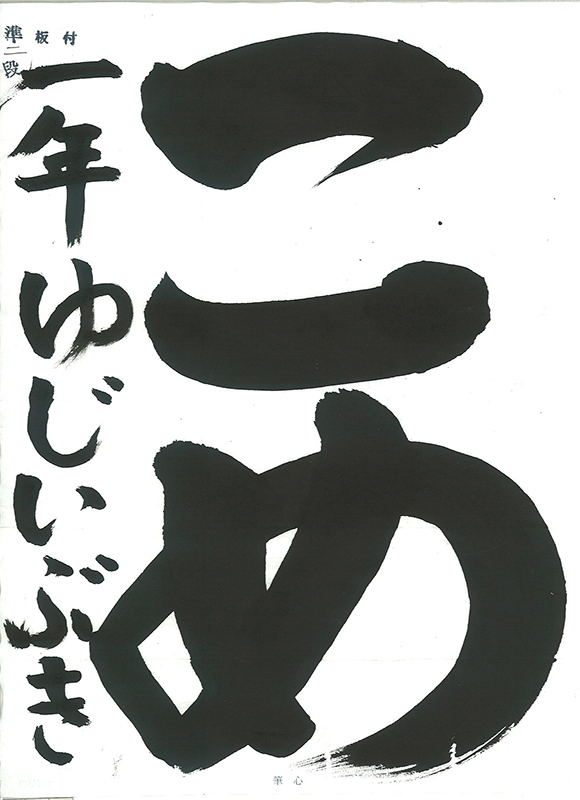 こめ
板付
準二段
一年ゆじいぶき
筆心